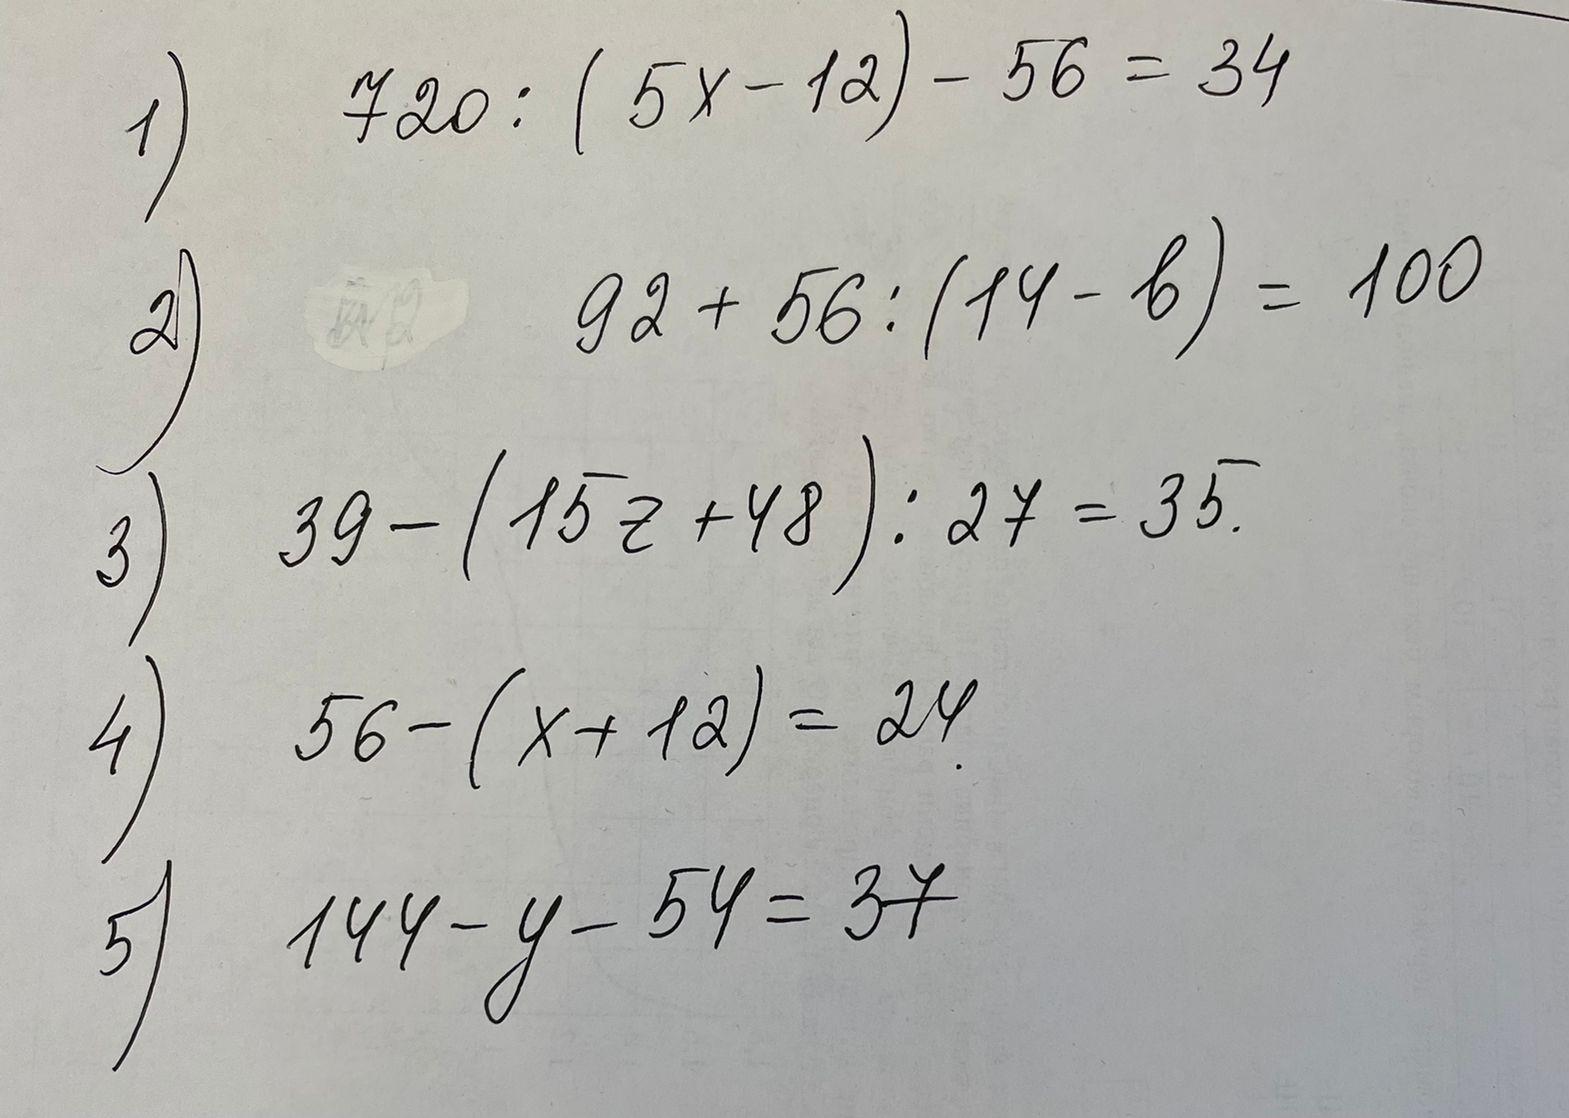 1) 720 : ( 5x - 12) - 56 = 34
2) 92 + 56 : (14 - b) = 100
3) 39 - (15z + 48) : 27 = 35.
4) 56 - (x + 12) = 24.
5) 144 - y - 54 = 37